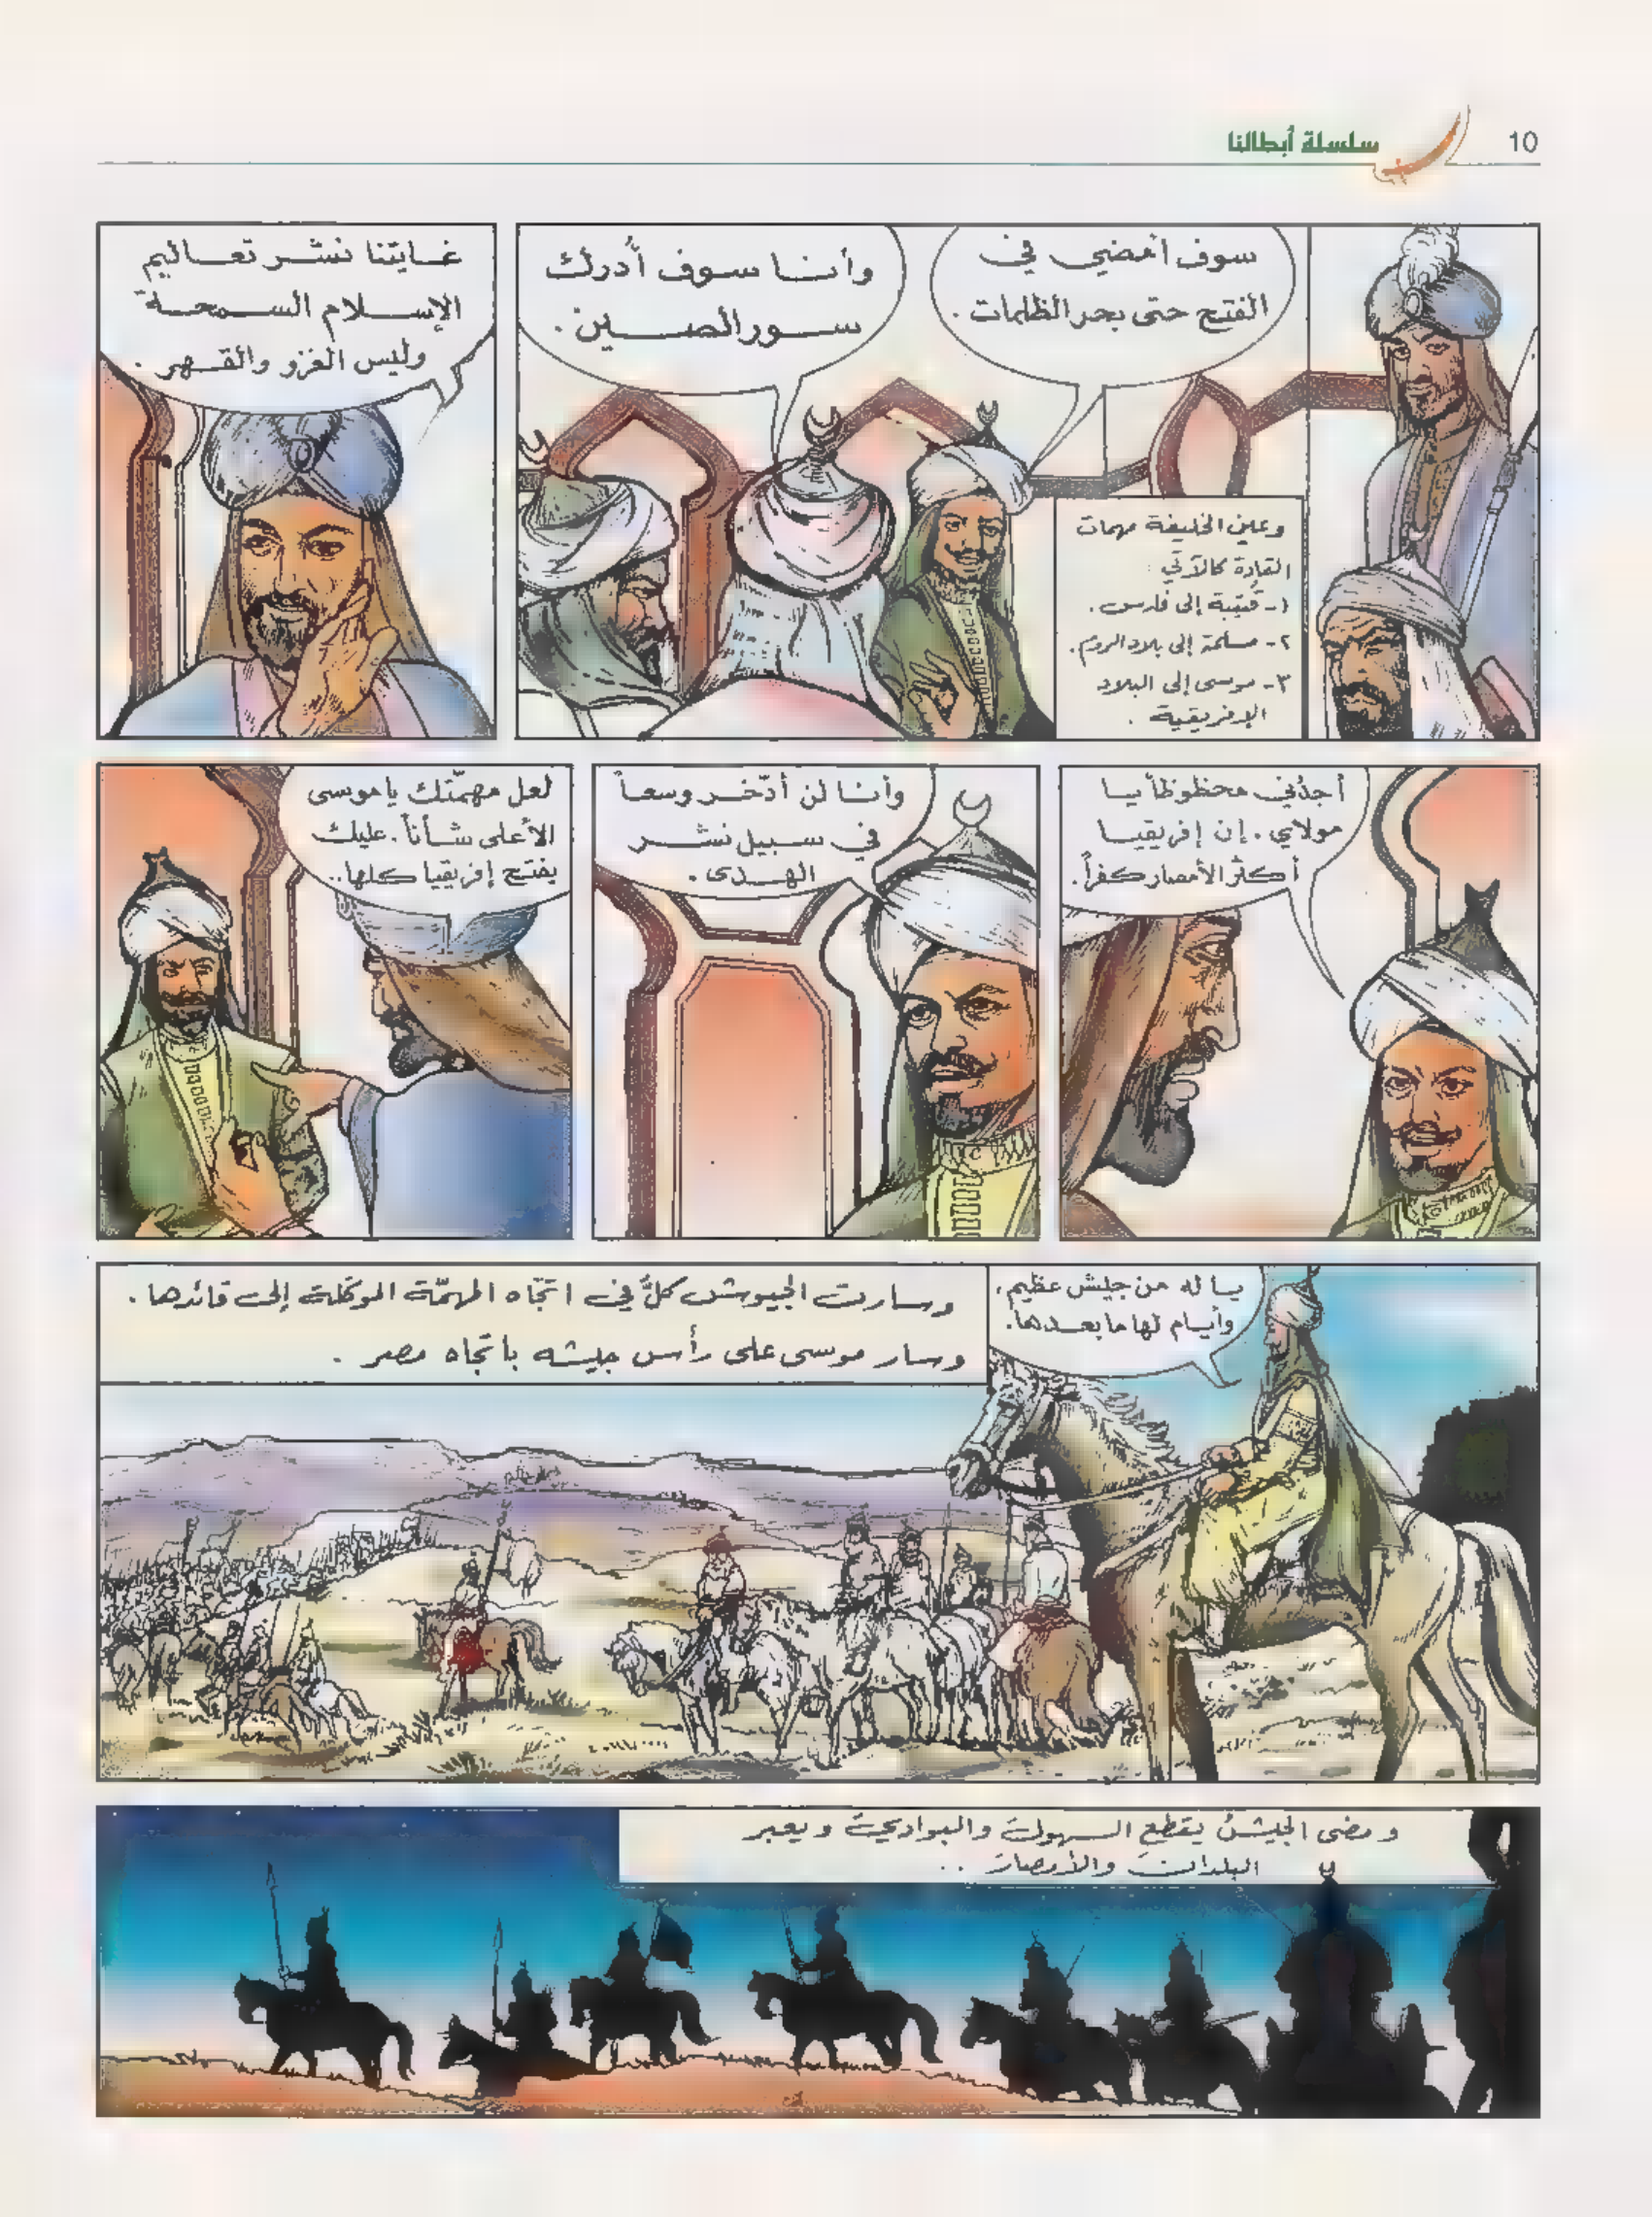 10
سلسلة أبطالنا
وعين الخليفة مهمات
القادة كالآتي :
١- قُتيبة إلى فارس .
٢- مسلمة إلى بلاد الروم .
٣- موسى إلى البلاد
الإفريقية .
سوف أمضي في
الفتح حتى بحر الظلمات .
وأنا سوف أدرك
سور الصين .
غايتنا نشر تعاليم
الإسلام السمحة
وليس الغزو والقهر .
أجدُني محظوظاً يا
مولاي . إن إفريقيا
أكثر الأمصار كفراً .
وأنا لن أدّخر وسعاً
في سبيل نشر
الهدى .
لعل مهمّتك يا موسى
الأعلى شأناً . عليك
بفتح إفريقيا كلها ..
يا له من جيش عظيم ،
وأيام لها ما بعدها .
وسارت الجيوش كلٌّ في اتجّاه المهمّة الموكلة إلى قائدها .
وسار موسى على رأس جيشه باتجاه مصر .
ومضى الجيشُ يقطع السهولَ والبواديَ ويعبر
البلدانَ والأمصارَ ..